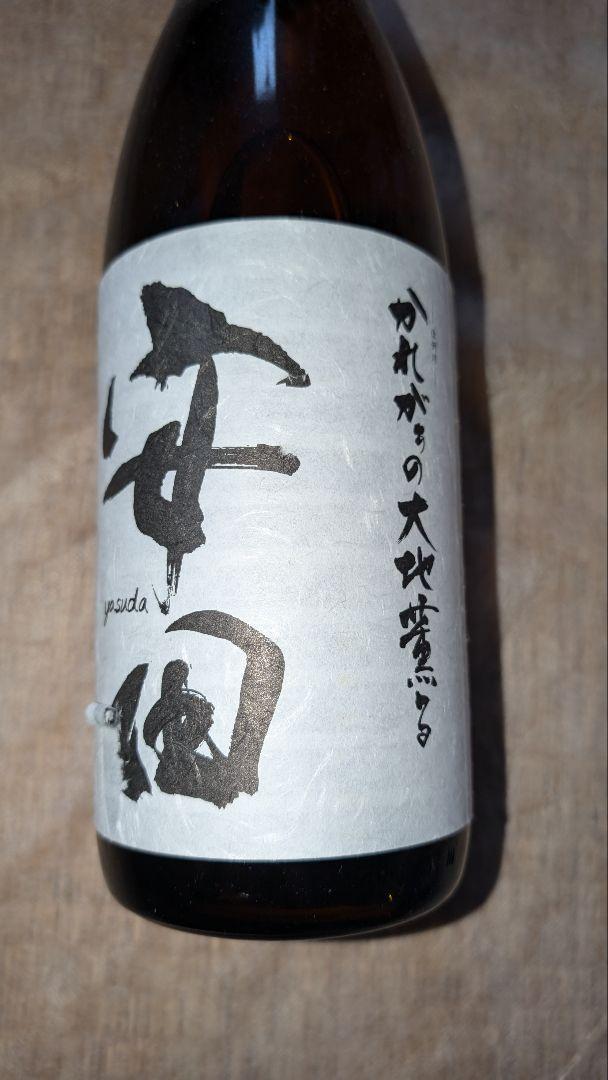 かれがぁの大地薫る
安田
yasuda